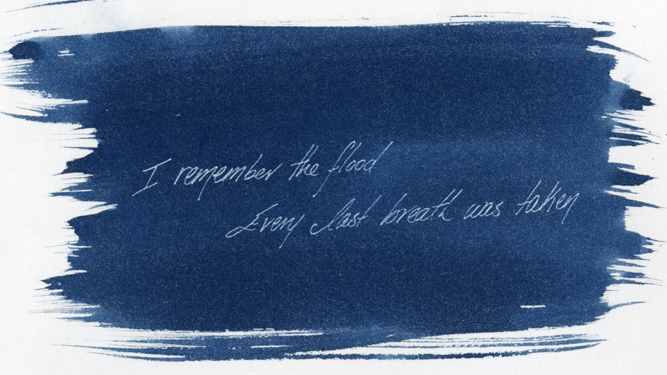 I remember the flood
Every last breath was taken